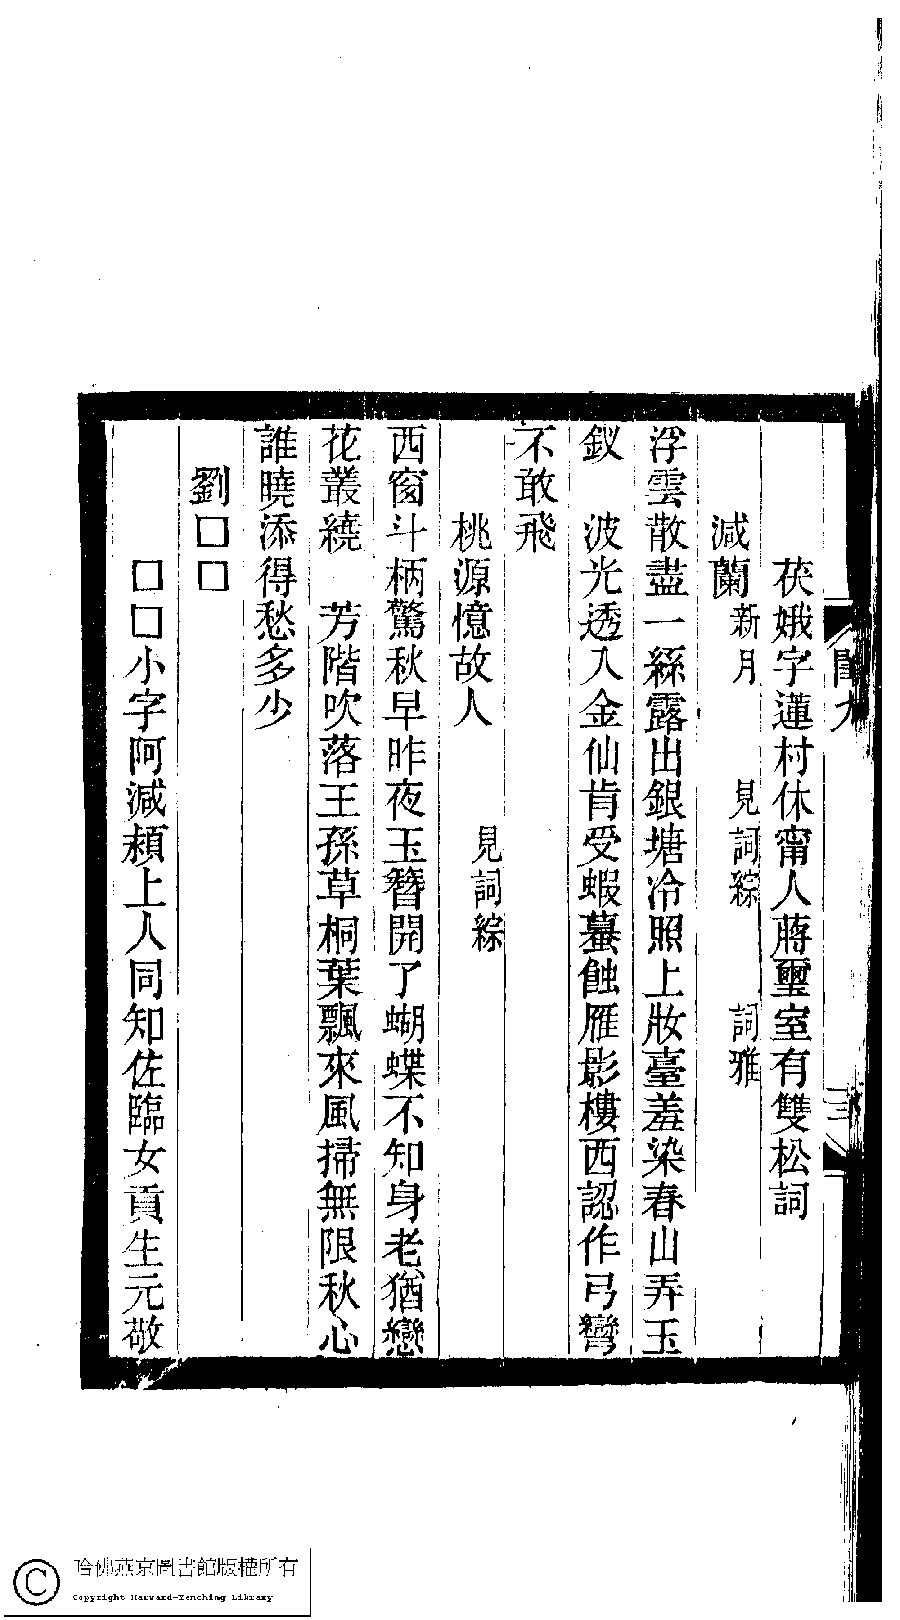 茯娥字蓮村休甯人蔣璽室有雙松詞
減蘭 新月 見詞綜 詞雅
浮雲散盡一絲露出銀塘冷照上妝臺羞染春山弄玉
釵 波光透入金仙肯受蝦蟇蝕雁影樓西認作弓彎
不敢飛
桃源憶故人 見詞綜
西窗斗柄驚秋早昨夜玉簪開了蝴蝶不知身老猶戀
花叢繞 芳階吹落王孫草桐葉飄來風掃無限秋心
誰曉添得愁多少
劉□□
□□小字阿減潁上人同知佐臨女貢生元敬
閨九
三
哈佛燕京圖書館版權所有
Copyright Harvard-Yenching Library